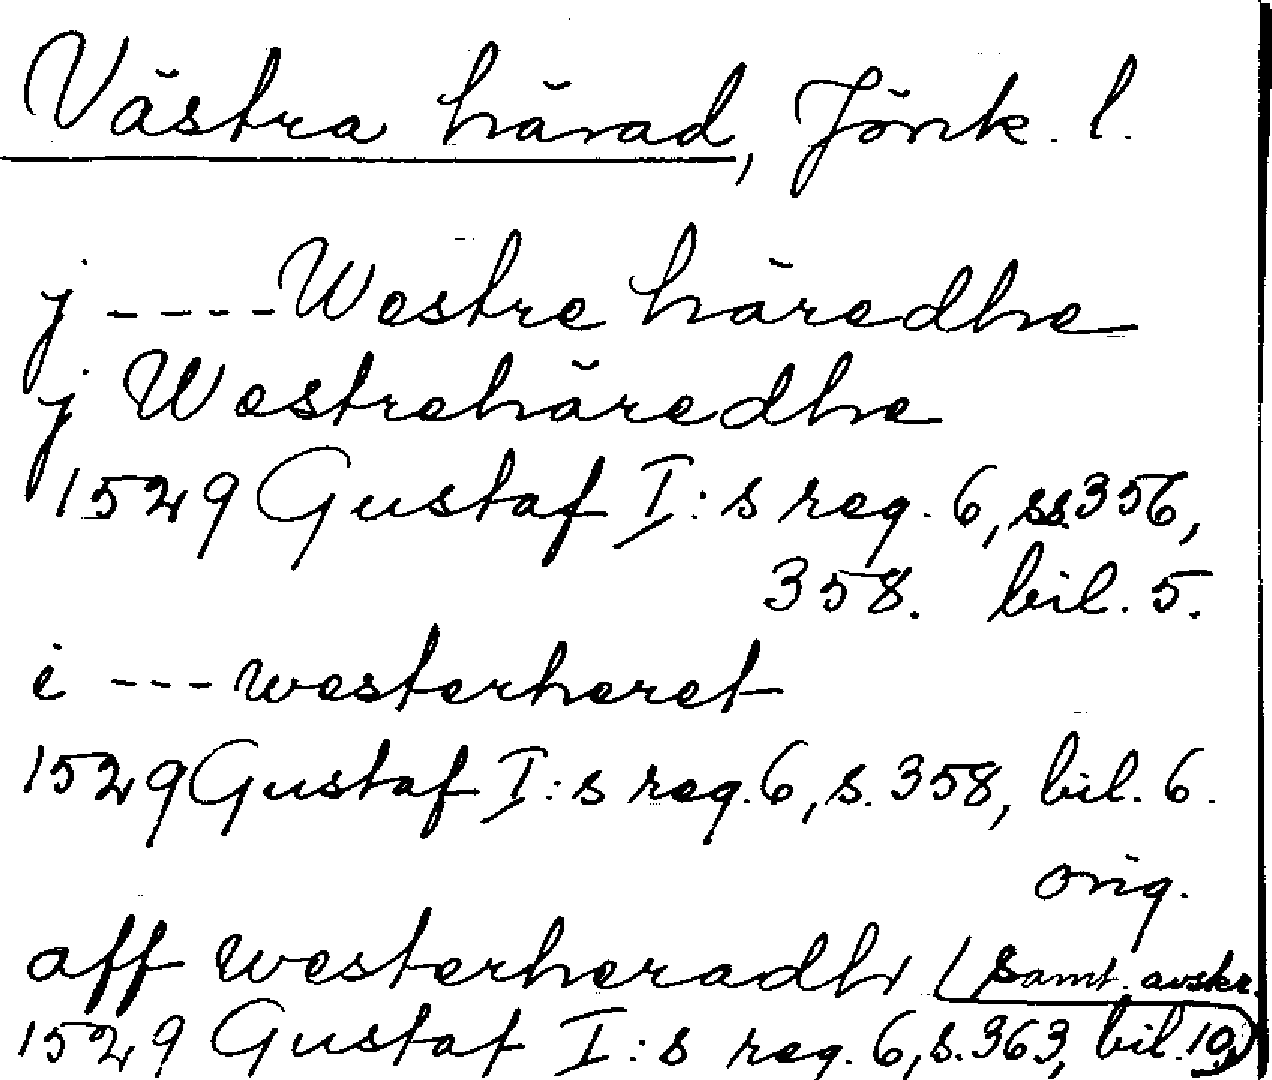 Västra härad, Jönk. l.
j ----Westre häredhe
j Westrehäredhe
1529 Gustaf I:s reg. 6, ss 356,
358. bil. 5.
i ---westerheret
1529 Gustaf I:s reg. 6, s. 358, bil. 6.
orig.
aff westerheradh (samt. avskr.
1529 Gustaf I:s reg. 6, s. 363, bil. 10)